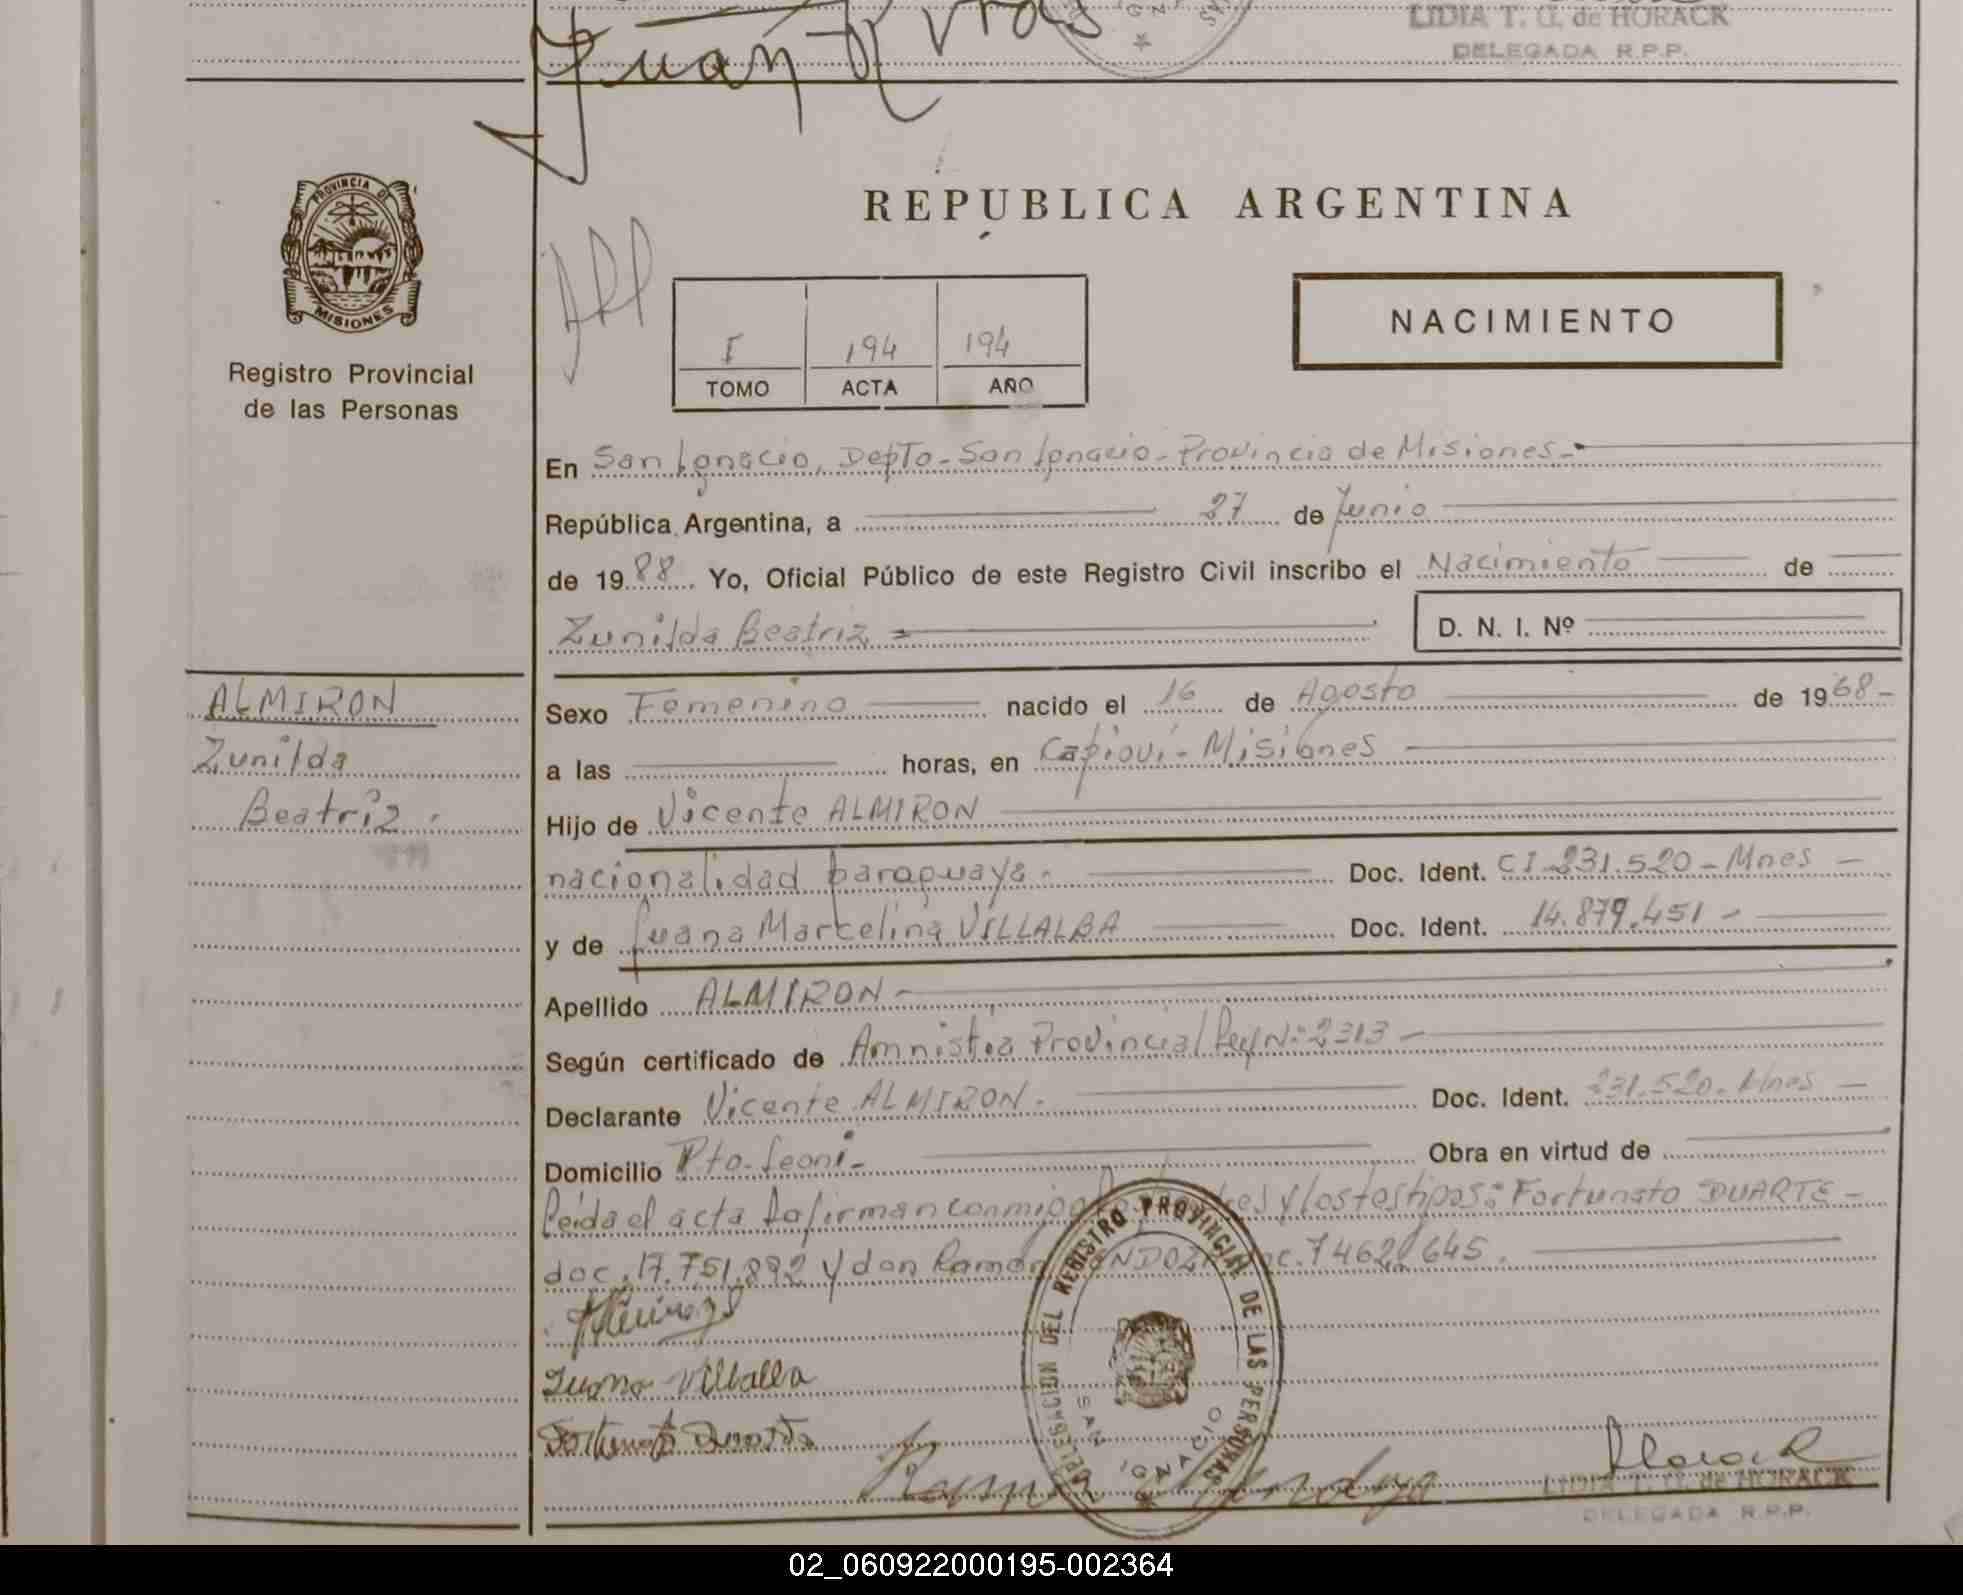 Juan
LIDIA T. G. de HORACK
DELEGADA R.P.P.
PROVINCIA DE
MISIONES
Registro Provincial
de las Personas
REPUBLICA ARGENTINA
I 194 194
TOMO ACTA AÑO
NACIMIENTO
En San Ignacio, Depto- San Ignacio- Provincia de Misiones-
República Argentina, a 27 de Junio
de 1988 Yo, Oficial Público de este Registro Civil inscribo el Nacimiento de
Zunilda Beatriz = D. N. I. Nº
ALMIRON
Zunilda
Beatriz.
Sexo Femenino nacido el 16 de Agosto de 1968-
a las horas, en Capioví- Misiones
Hijo de Vicente ALMIRON
nacionalidad paraguaya. Doc. Ident. CI 231.520-Mnes
y de Juana Marcelina VILLALBA Doc. Ident. 14.879.451-
Apellido ALMIRON-
Según certificado de Amnistia Provincial Ley Nº 2313-
Declarante Vicente ALMIRON. Doc. Ident. 231.520.Mnes
Domicilio Pto. Leoni- Obra en virtud de
Leida el acta la firman conmigo y los testigos: Fortunato DUARTE-
doc. 17.751.892 y don Ramon doc. 7462645.
Juana Villalba
Ramon
DELEGACION DEL REGISTRO PROVINCIAL DE LAS PERSONAS
SAN IGNACIO
LIDIA T. G. de HORACK
DELEGADA R.P.P.
02_060922000195-002364